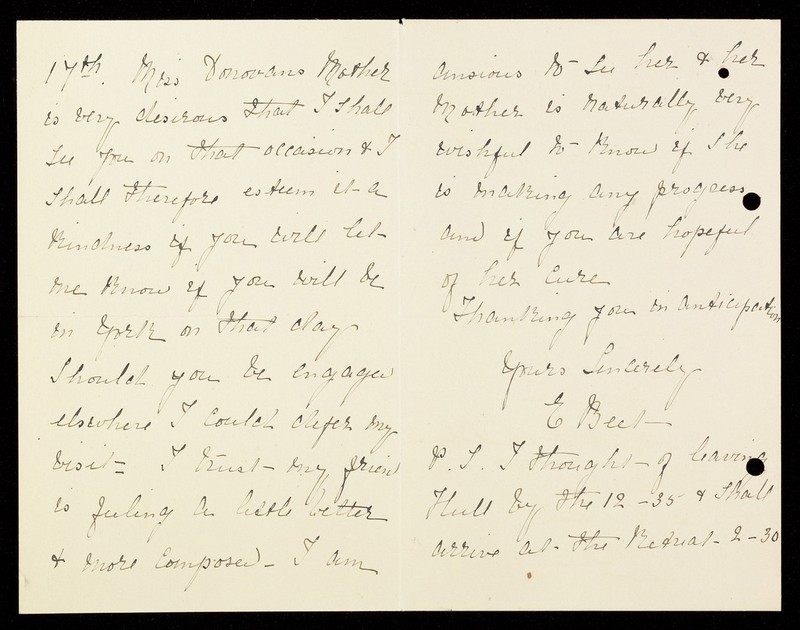 17th. Miss Donovans Mother
is very desirous that I shall
see you on that occasion & I
shall therefore esteem it a
kindness if you will let
me know if you will be
in York on that day
Should you be engaged
elsewhere I could defer my
visit = I trust - my friend
is feeling a little better
& more composed - I am
anxious to see her & her
Mother is naturally very
wishful to know if she
is making any progress
and if you are hopeful
of her cure
Thanking you in anticipation
Yours Sincerely
E Beet
P.S. I thought - of leaving
Hull by the 12 - 35 & shall
arrive at - the Retreat - 2 - 30